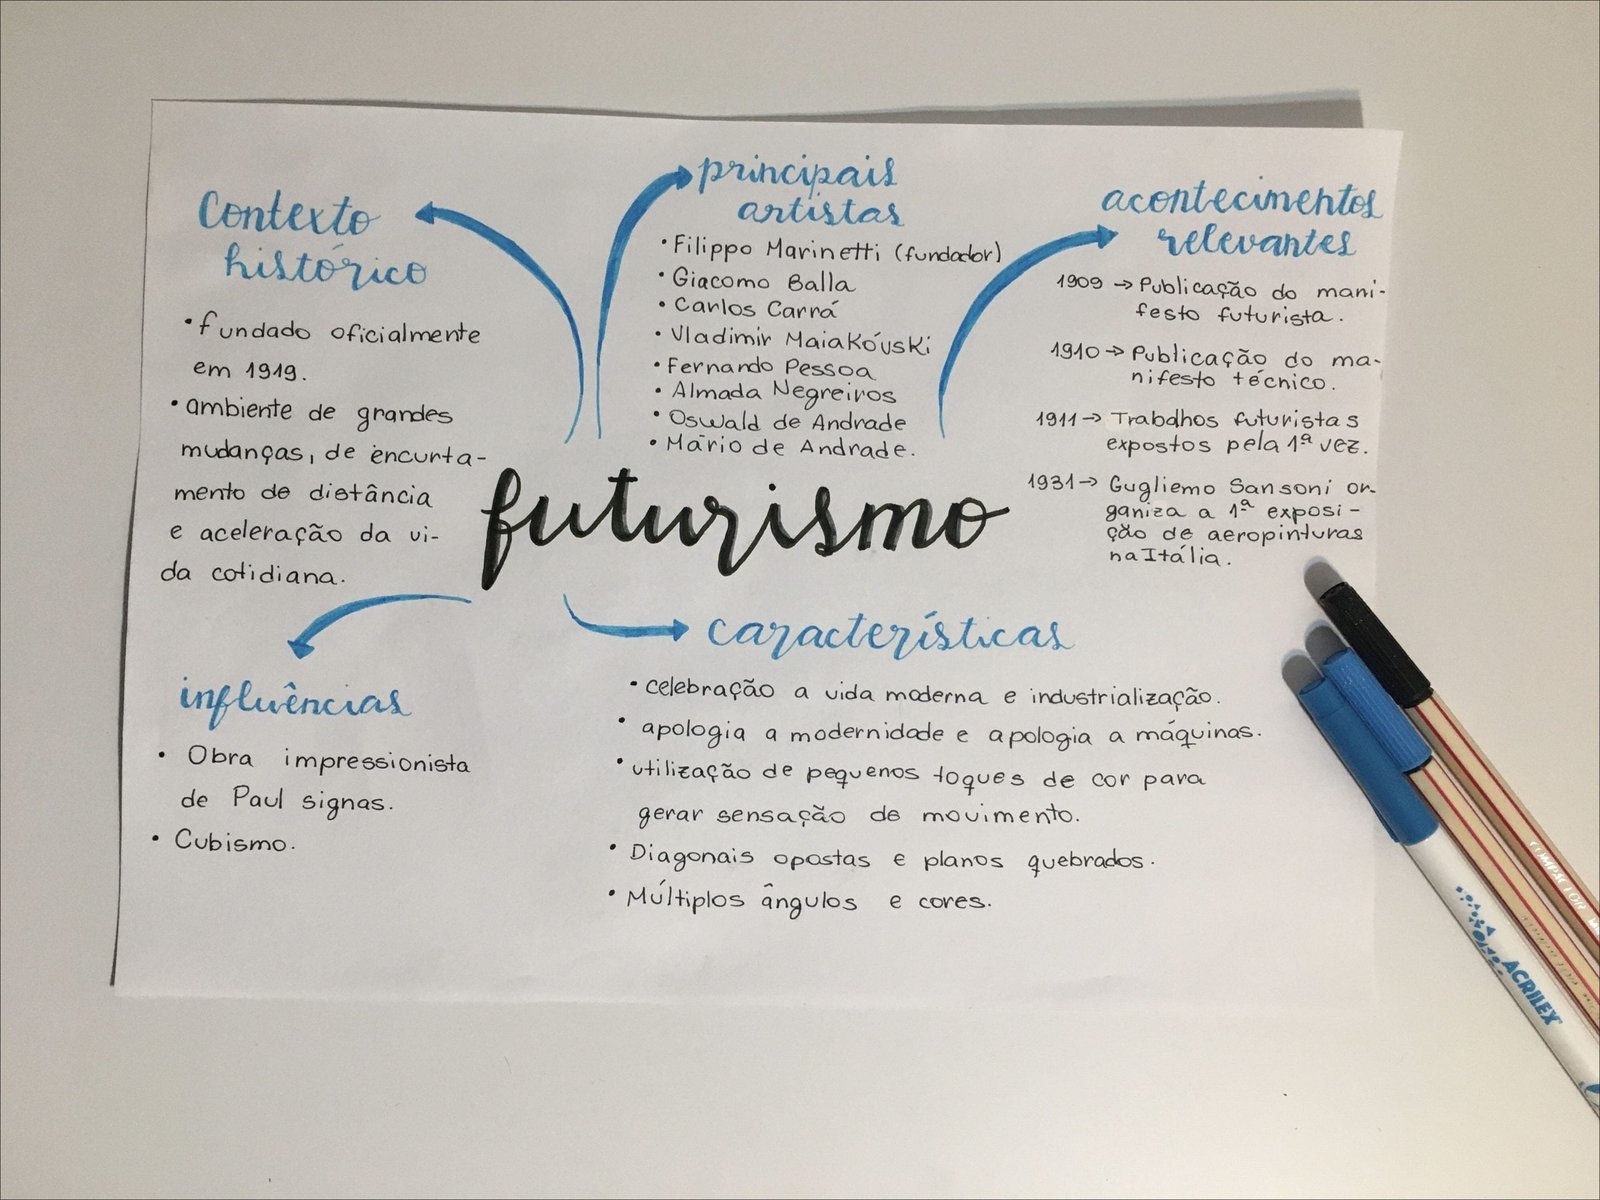 Contexto
histórico
• fundado oficialmente
em 1919.
• ambiente de grandes
mudanças, de encurta-
mento de distância
e aceleração da vi-
da cotidiana.
principais
artistas
• Filippo Marinetti (fundador)
• Giacomo Balla
• Carlos Carrá
• Vladimir Maiakóvski
• Fernando Pessoa
• Almada Negreiros
• Oswald de Andrade
• Mário de Andrade.
acontecimentos
relevantes
1909 → Publicação do mani-
festo futurista.
1910 → Publicação do ma-
nifesto técnico.
1911 → Trabalhos futuristas
expostos pela 1ª vez.
1931 → Gugliemo Sansoni or-
ganiza a 1ª exposi-
ção de aeropinturas
na Itália.
futurismo
influências
• Obra impressionista
de Paul signas.
• Cubismo.
características
• celebração a vida moderna e industrialização.
• apologia a modernidade e apologia a máquinas.
• utilização de pequenos toques de cor para
gerar sensação de movimento.
• Diagonais opostas e planos quebrados.
• Múltiplos ângulos e cores.
COMPACTOR
ACRILEX